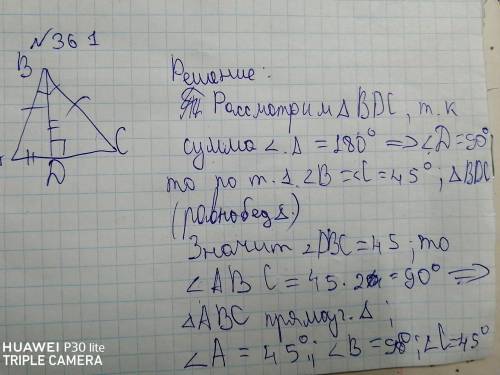 №361
B
C
D
Решение:
Рассмотрим △BDC, т.к
сумма ∠.△ = 180° => ∠D=90°
то по т.1.∠B=∠C=45°; △BDC
(равнобед △.)
Значит ∠DBC=45; то
∠ABC = 45·2=90° =>
△ABC прямоуг.△;
∠A = 45°; ∠B = 90°; ∠C=45°
HUAWEI P30 lite
TRIPLE CAMERA